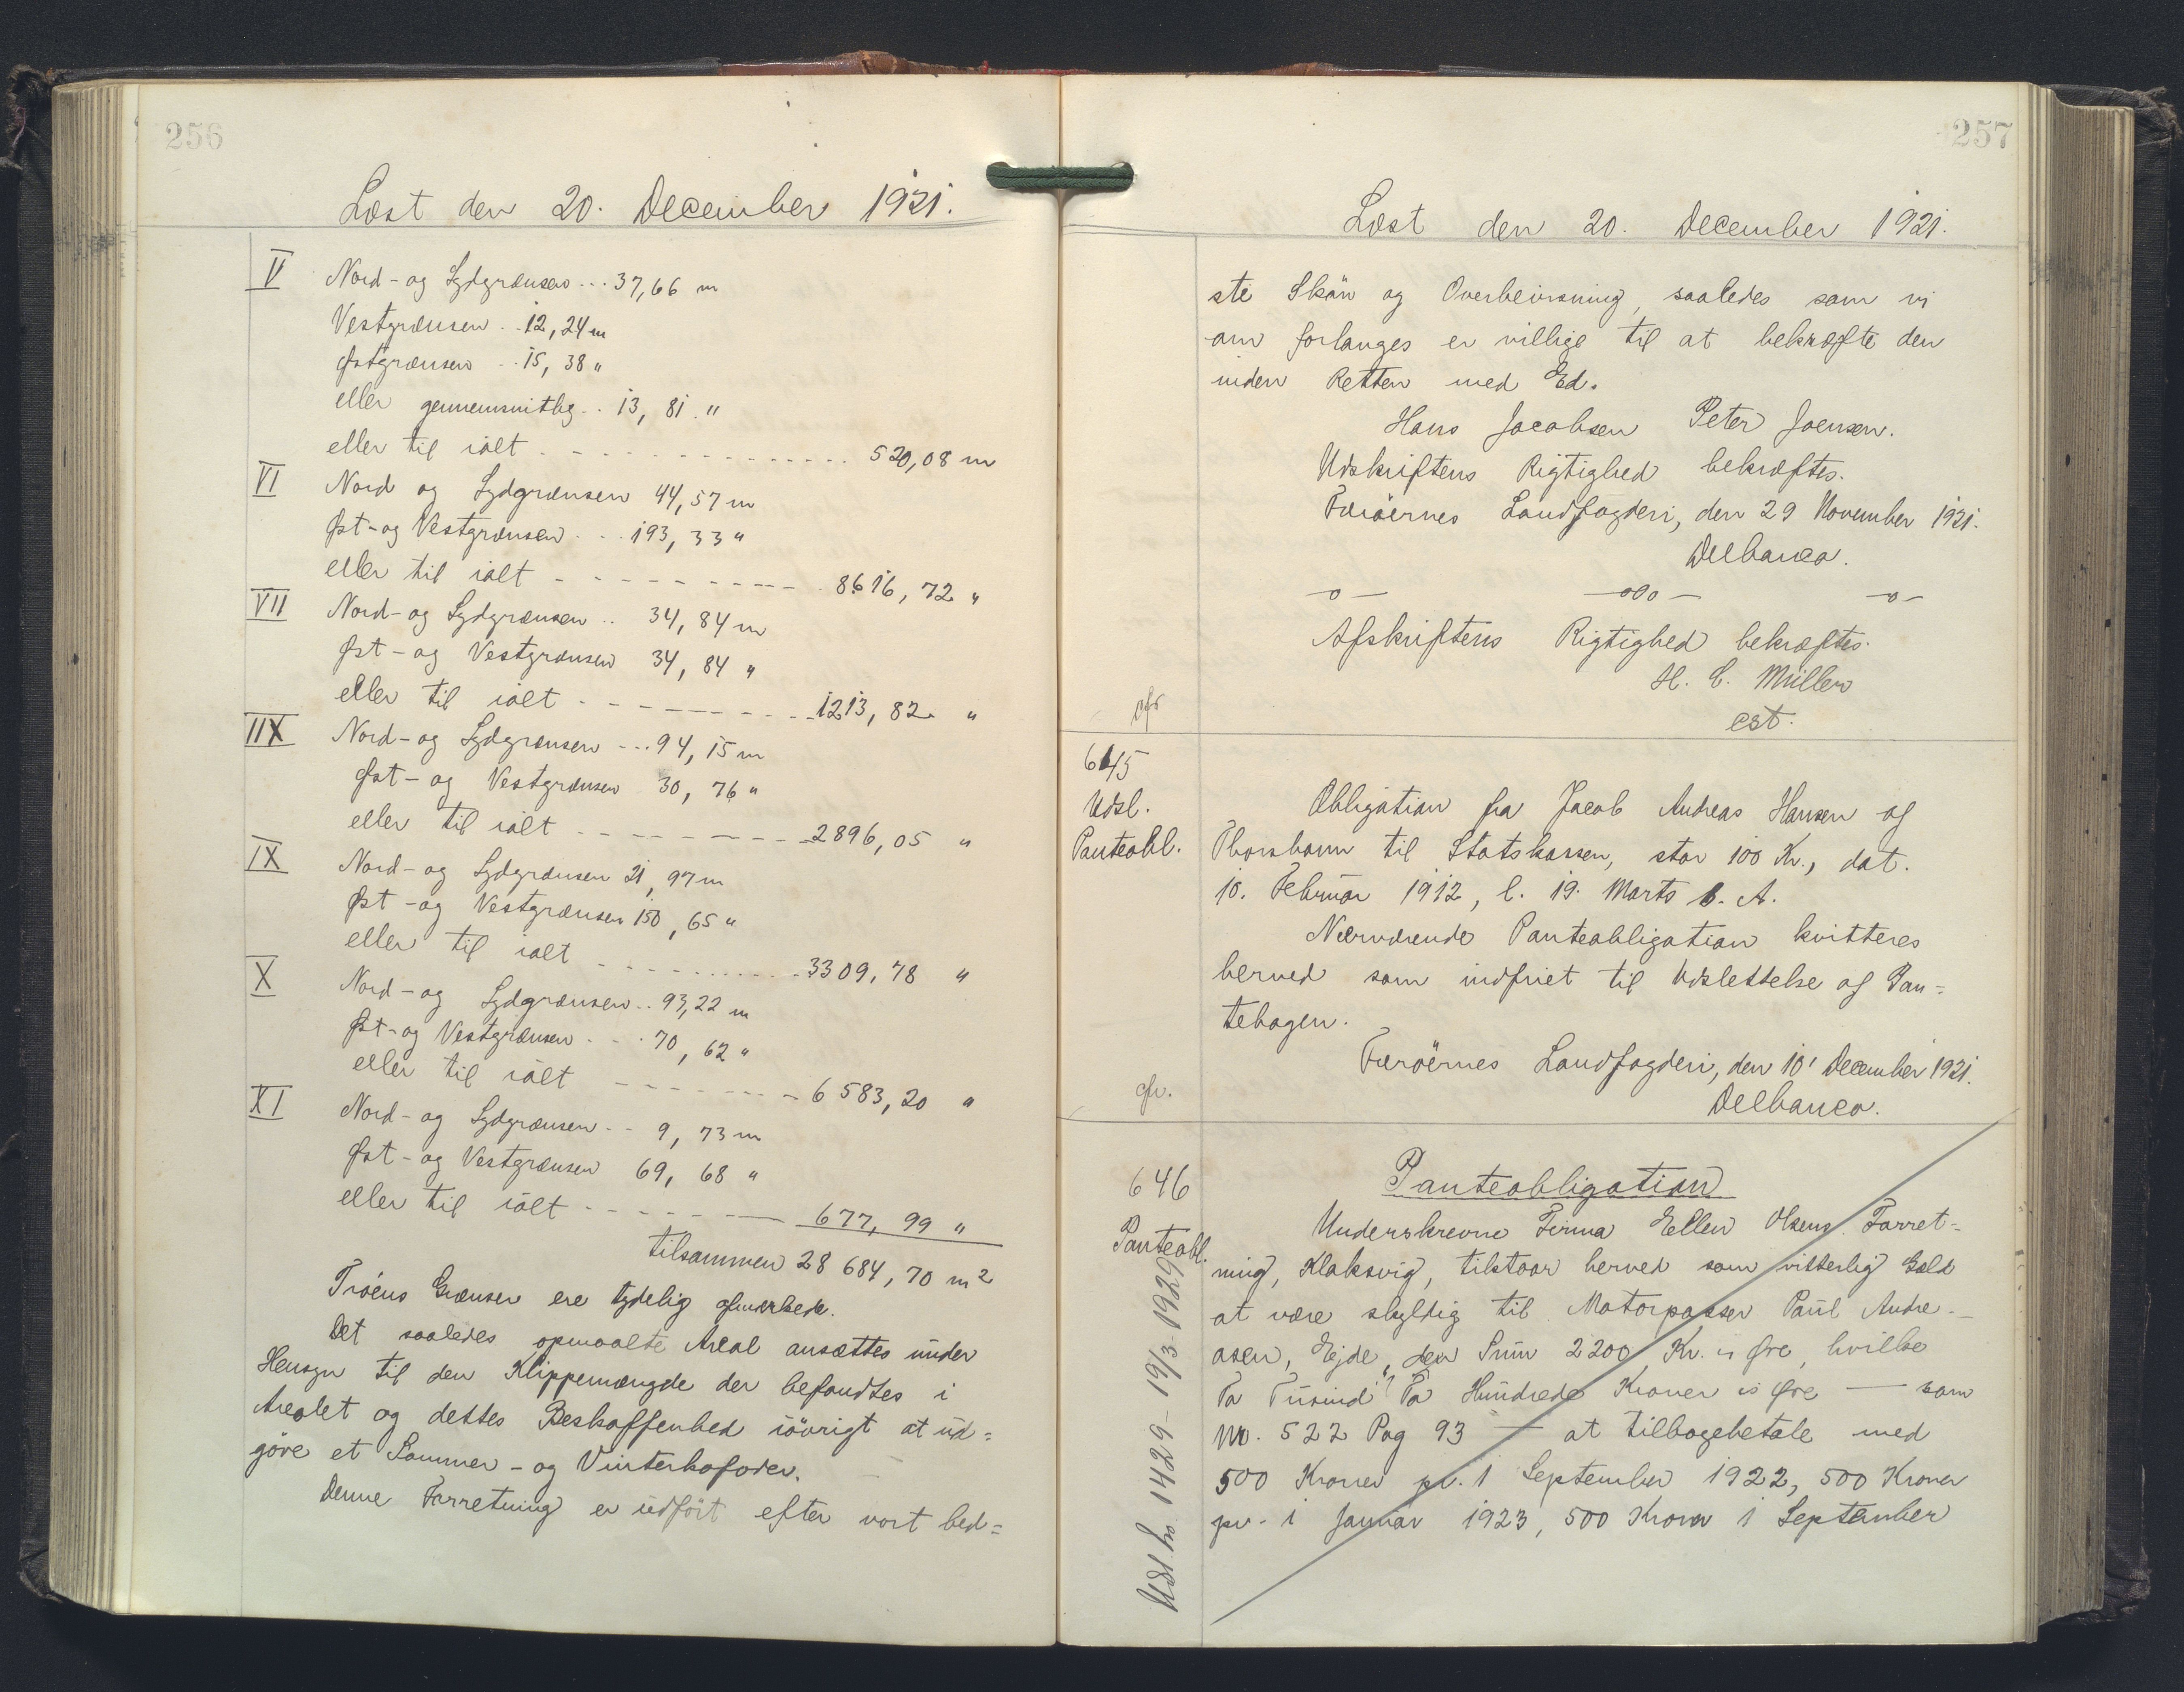 256
Læst den 20. December 1921.
V Nord- og Sydgrænsen ... 37,66 m
Vestgrænsen .. 12,24 m
Østgrænsen .. 15,38 "
eller gennemsnitlig .. 13,81 "
eller til ialt - - - - 520,08 m
VI Nord og Sydgrænsen 44,57 m
Øst- og Vestgrænsen ... 193,33 "
eller til ialt - - - - 8616,72 "
VII Nord- og Sydgrænsen .. 34,84 m
Øst- og Vestgrænsen 34,84 "
eller til ialt - - - - 1213,82 "
IIX Nord- og Sydgrænsen ... 94,15 m
Øst- og Vestgrænsen 30,76 "
eller til ialt - - - - 2896,05 "
IX Nord- og Sydgrænsen 21,97 m
Øst- og Vestgrænsen 150,65 "
eller til ialt - - - - 3309,78 "
X Nord- og Sydgrænsen .. 93,22 m
Øst- og Vestgrænsen ... 70,62 "
eller til ialt - - - - 6583,20 "
XI Nord- og Sydgrænsen .. 9,73 m
Øst- og Vestgrænsen 69,68 "
eller til ialt - - - - 677,99 "
tilsammen 28 684,70 m2
Tröens Grænser ere tydelig afmærkede.
Det saaledes opmaalte Areal ansættes under
Hensyn til den Klippemængde der befandtes i
Arealet og dettes Beskaffenhed iövrigt at ud=
göre et Sommer- og Vinterkofoder.
Denne Forretning er udfört efter vort bed=
257
Læst den 20. December 1921.
ste Skön og Overbevisning, saaledes som vi
om forlanges er villige til at bekræfte den
inden Retten med Ed.
Hans Jacobsen Peter Joensen.
Udskriftens Rigtighed bekræftes.
Færöernes Landfogderi, den 29 November 1921.
Delbanco.
-o- -o0o- -o-
Afskriftens Rigtighed bekræftes.
H. C. Müller
cst.
cfr
645
Udsl.
Panteobl.
Obligation fra Jacob Andreas Hansen af
Thorshavn til Statskassen, stor 100 Kr., dat.
10. Februar 1912, l. 19. Marts s. A.
Nærværende Panteobligation kvitteres
herved som indfriet til Udslettelse af Pan=
tebogen.
Færöernes Landfogderi, den 10' December 1921.
Delbanco.
cfr.
646
Panteobl.
Udsl. No. 1429 - 19/3 1929
Panteobligation
Underskrevne Firma Ellen Olsens Forret=
ning, Klaksvig, tilstaar herved som vitterlig Gæld
at være skyldig til Motorpasser Paul Andre-
asen, Ejde, den Sum 2200 Kr. " Øre, hvilke
To Tusind To Hundrede Kroner " Øre — som
No. 522 Pag 93 — at tilbagebetale med
500 Kroner pr. 1 September 1922, 500 Kroner
pr. 1 Januar 1923, 500 Kroner 1 September